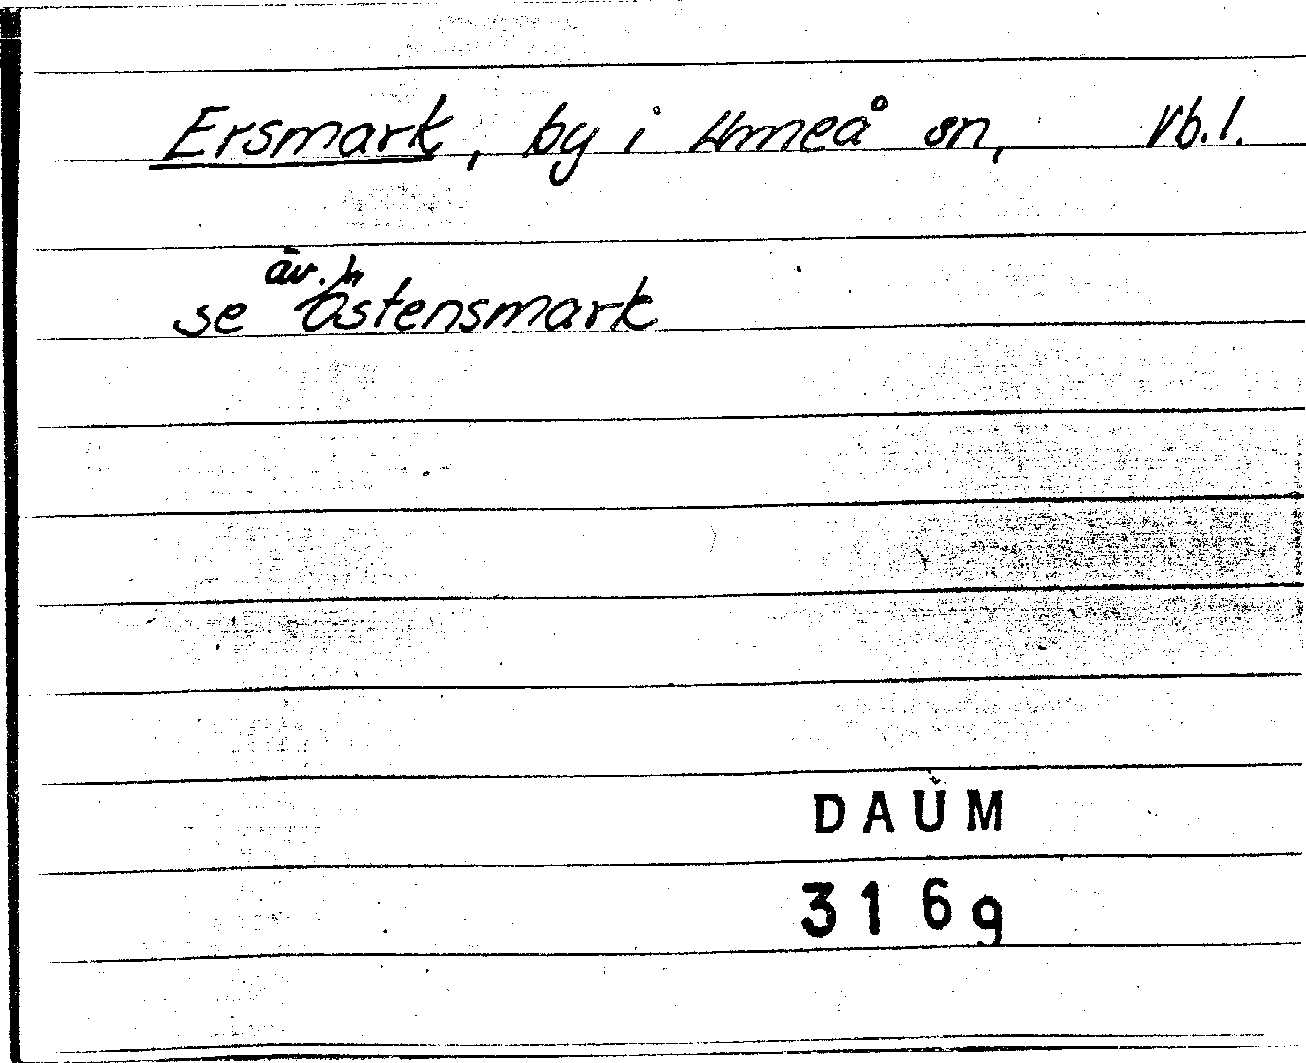 Ersmark, by i Umeå sn, Vb.l.
se äv. Östensmark
DAUM
3169